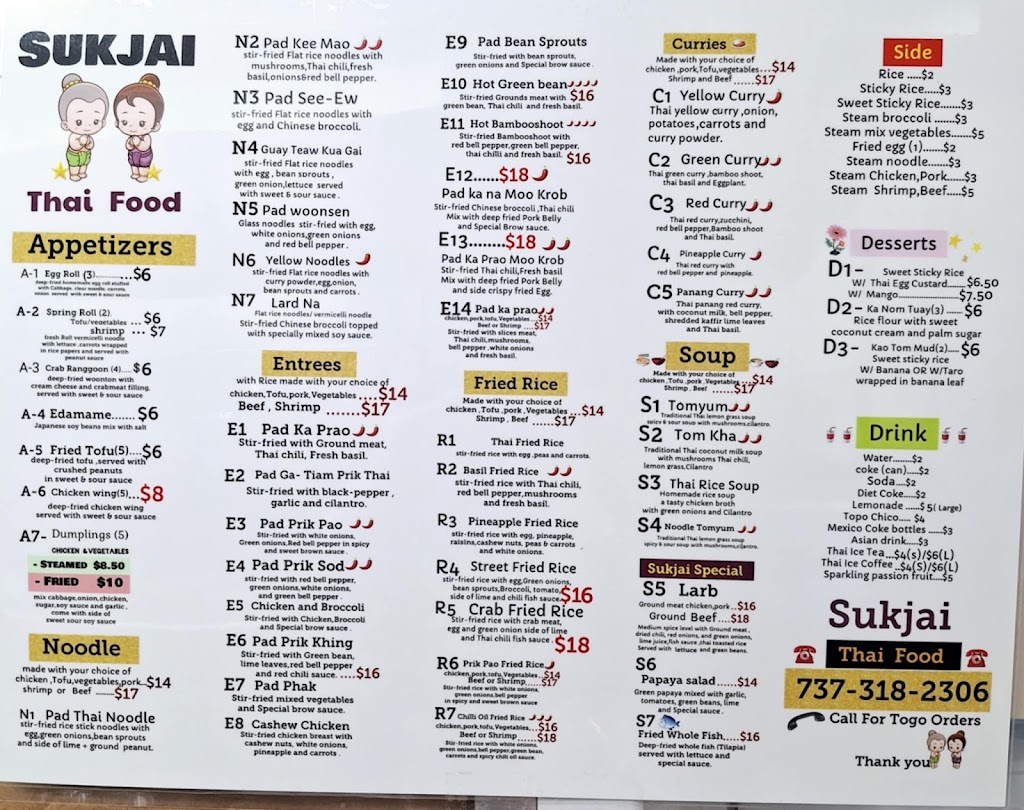 SUKJAI
Thai Food
Appetizers
A-1 Egg Roll (3)............$6
deep-fried homemade egg roll stuffed
with Cabbage, clear noodle, carrots,
onion served with sweet & sour sauce
A-2 Spring Roll (2)
Tofu/vegetables ... $6
shrimp ... $7
fresh Roll vermicelli noodle
with lettuce ,carrots wrapped
in rice papers and served with
peanut sauce
A-3 Crab Ranggoon (4)....$6
deep-fried woonton with
cream cheese and crabmeat filling,
served with sweet & sour sauce
A-4 Edamame....... $6
Japanese soy beans mix with salt
A-5 Fried Tofu(5)....$6
deep-fried tofu ,served with
crushed peanuts
in sweet & sour sauce
A-6 Chicken wing(5)...$8
deep-fried chicken wing
served with sweet & sour sauce
A7- Dumplings (5)
CHICKEN & VEGETABLES
- STEAMED $8.50
- FRIED $10
mix cabbage,onion,chicken,
sugar,soy sauce and garlic ,
come with side of
sweet sour soy sauce
Noodle
made with your choice of
chicken ,Tofu,vegetables,pork...$14
shrimp or Beef ........$17
N1 Pad Thai Noodle
stir-fried rice stick noodles with
egg,green onions,bean sprouts
and side of lime + ground peanut.
N2 Pad Kee Mao
stir-fried Flat rice noodles with
mushrooms,Thai chili,fresh
basil,onions&red bell pepper.
N3 Pad See-Ew
stir-fried Flat rice noodles with
egg and Chinese broccoli.
N4 Guay Teaw Kua Gai
stir-fried Flat rice noodles
with egg , bean sprouts ,
green onion,lettuce served
with sweet & sour sauce .
N5 Pad woonsen
Glass noodles stir-fried with egg,
white onions,green onions
and red bell pepper .
N6 Yellow Noodles
stir-fried Flat rice noodles with
curry powder,egg,onion,
bean sprouts and carrots .
N7 Lard Na
Flat rice noodles/ vermicelli noodle
Stir-fried Chinese broccoli topped
with specially mixed soy sauce.
Entrees
with Rice made with your choice of
chicken,Tofu,pork,Vegetables .....$14
Beef , Shrimp .......$17
E1 Pad Ka Prao
Stir-fried with Ground meat,
Thai chili, Fresh basil.
E2 Pad Ga- Tiam Prik Thai
Stir-fried with black-pepper ,
garlic and cilantro.
E3 Pad Prik Pao
Stir-fried with white onions,
Green onions,Red bell pepper in spicy
and sweet brown sauce .
E4 Pad Prik Sod
stir-fried with red bell pepper,
green onions,white onions,
and green bell pepper .
E5 Chicken and Broccoli
Stir-fried with Chicken,Broccoli
and Special brow sauce .
E6 Pad Prik Khing
Stir-fried with Green bean,
lime leaves,red bell pepper
and red chili sauce. ......$16
E7 Pad Phak
Stir-fried mixed vegetables
and Special brow sauce.
E8 Cashew Chicken
Stir-fried chicken breast with
cashew nuts, white onions,
pineapple and carrots .
E9 Pad Bean Sprouts
Stir-fried with bean sprouts,
green onions and Special brow sauce .
E10 Hot Green bean
Stir-fried Grounds meat with $16
green bean, Thai chili and fresh basil.
E11 Hot Bambooshoot
Stir-fried Bambooshoot with
red bell pepper,green bell pepper,
thai chilli and fresh basil. $16
E12......$18
Pad ka na Moo Krob
Stir-fried Chinese broccoli ,Thai chili
Mix with deep fried Pork Belly
and Special Brow sauce.
E13........$18
Pad Ka Prao Moo Krob
Stir-fried Thai chili,Fresh basil
Mix with deep fried Pork Belly
and side crispy fried Egg.
E14 Pad ka prao
chicken,pork,tofu,Vegetables ..$14
Beef or Shrimp .....$17
Stir-fried with slices meat,
Thai chili,mushrooms,
bell pepper ,white onions
and fresh basil.
Fried Rice
Made with your choice of
chicken ,Tofu ,pork ,Vegetables .....$14
Shrimp , Beef .......$17
R1 Thai Fried Rice
stir-fried rice with egg ,peas and carrots.
R2 Basil Fried Rice
stir-fried rice with Thai chili,
red bell pepper,mushrooms
and fresh basil.
R3 Pineapple Fried Rice
stir-fried rice with egg, pineapple,
raisins,cashew nuts, peas & carrots
and white onions.
R4 Street Fried Rice
stir-fried rice with egg,Green onions,
bean sprouts,Broccoli, tomato,
side of lime and chili fish sauce. $16
R5 Crab Fried Rice
Stir-fried rice with crab meat,
egg and green onion side of lime
and Thai chili fish sauce. $18
R6 Prik Pao Fried Rice
chicken,pork,tofu,Vegetables...$14
Beef or Shrimp......$17
Stir-fried rice with white onions,
green onions,bell pepper
in spicy and sweet brown sauce
R7 Chilli Oil Fried Rice
chicken,pork,tofu,Vegetables...$16
Beef or Shrimp .....$18
Stir-fried rice with white onions,
green onions,bell pepper,green bean,
carrots and spicy chili oil sauce.
Curries
Made with your choice of
chicken ,pork,Tofu,vegetables....$14
Shrimp and Beef ......$17
C1 Yellow Curry
Thai yellow curry ,onion,
potatoes,carrots and
curry powder.
C2 Green Curry
Thai green curry ,bamboo shoot,
thai basil and Eggplant.
C3 Red Curry
Thai red curry,zucchini,
red bell pepper,Bamboo shoot
and Thai basil.
C4 Pineapple Curry
Thai red curry with
red bell pepper and pineapple.
C5 Panang Curry
Thai panang red curry,
with coconut milk, bell pepper,
shredded kaffir lime leaves
and Thai basil.
Soup
Made with your choice of
chicken ,Tofu ,pork ,Vegetables ....$14
Shrimp , Beef .......$17
S1 Tomyum
Traditional Thai lemon grass soup
spicy & sour soup with mushrooms,cilantro.
S2 Tom Kha
Traditional Thai coconut milk soup
with mushrooms Thai chili,
lemon grass,Cilantro
S3 Thai Rice Soup
Homemade rice soup
a tasty chicken broth
with green onions and Cilantro
S4 Noodle Tomyum
Traditional Thai lemon grass soup
spicy & sour soup with mushrooms,cilantro.
Sukjai Special
S5 Larb
Ground meat chicken,pork ..$16
Ground Beef....$18
Medium spice level with Ground meat ,
dried chili, red onions, and green onions,
lime juice,fish sauce ,thai toasted rice
Served with lettuce and green beans.
S6
Papaya salad.....$14
Green papaya mixed with garlic,
tomatoes, green beans, lime
and Special sauce .
S7
Fried Whole Fish.....$16
Deep-fried whole fish (Tilapia)
served with lettuce and
special sauce.
Side
Rice .....$2
Sticky Rice....$3
Sweet Sticky Rice....$3
Steam broccoli .......$3
Steam mix vegetables.......$5
Fried egg (1).......$2
Steam noodle.....$3
Steam Chicken,Pork....$3
Steam Shrimp,Beef....$5
Desserts
D1- Sweet Sticky Rice
W/ Thai Egg Custard......$6.50
W/ Mango...........$7.50
D2- Ka Nom Tuay(3) ...... $6
Rice flour with sweet
coconut cream and palm sugar
D3- Kao Tom Mud(2)..... $6
Sweet sticky rice
W/ Banana OR W/Taro
wrapped in banana leaf
Drink
Water........$2
coke (can).....$2
Soda....$2
Diet Coke.....$2
Lemonade ......$ 5( Large)
Topo Chico..... $4
Mexico Coke bottles .....$3
Asian drink.....$3
Thai Ice Tea...$4(s)/$6(L)
Thai Ice Coffee ..$4(S)/$6(L)
Sparkling passion fruit.....$5
Sukjai
Thai Food
737-318-2306
Call For Togo Orders
Thank you